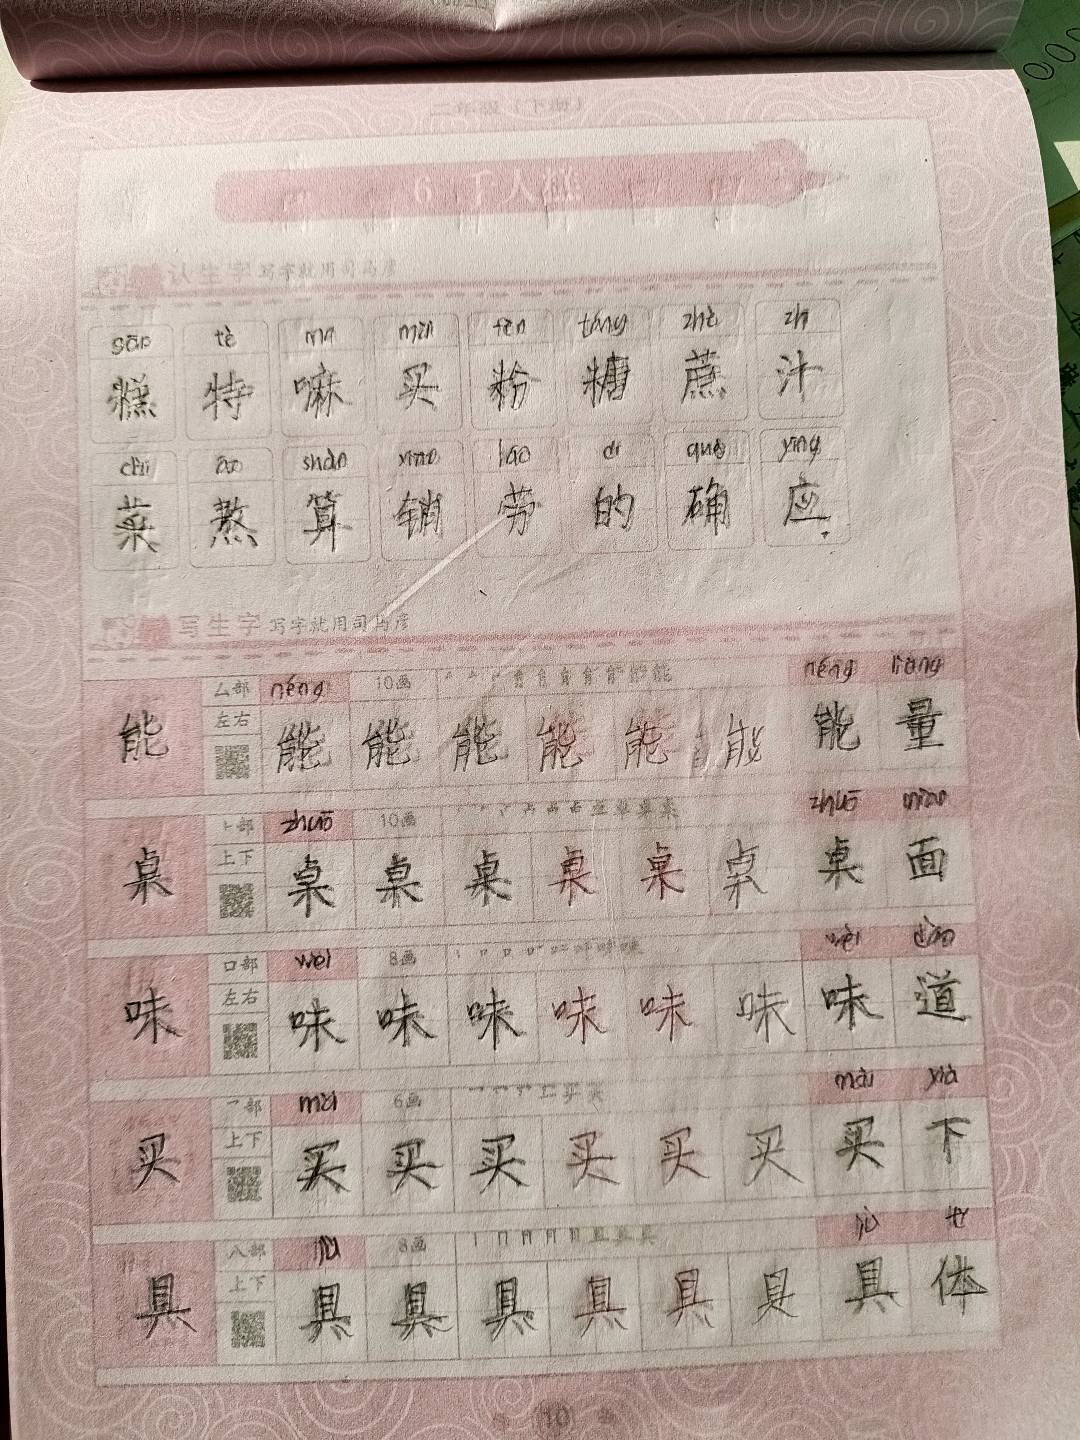 6 千人糕
认生字 写字就用司马彦
gāo tè ma mǎi fěn táng zhè zhī
糕 特 嘛 买 粉 糖 蔗 汁
cài áo suàn xiāo láo dí què yīng
菜 熬 算 销 劳 的 确 应
写生字 写字就用司马彦
厶部 néng 10画 néng liàng
能 左右 能 能 能 能 能 能 能 量
卜部 zhuō 10画 zhuō miàn
桌 上下 桌 桌 桌 桌 桌 桌 桌 面
口部 wèi 8画 wèi dào
味 左右 味 味 味 味 味 味 味 道
乛部 mǎi 6画 mǎi xià
买 上下 买 买 买 买 买 买 买 下
八部 jù 8画 jù tǐ
具 上下 具 具 具 具 具 具 具 体
10